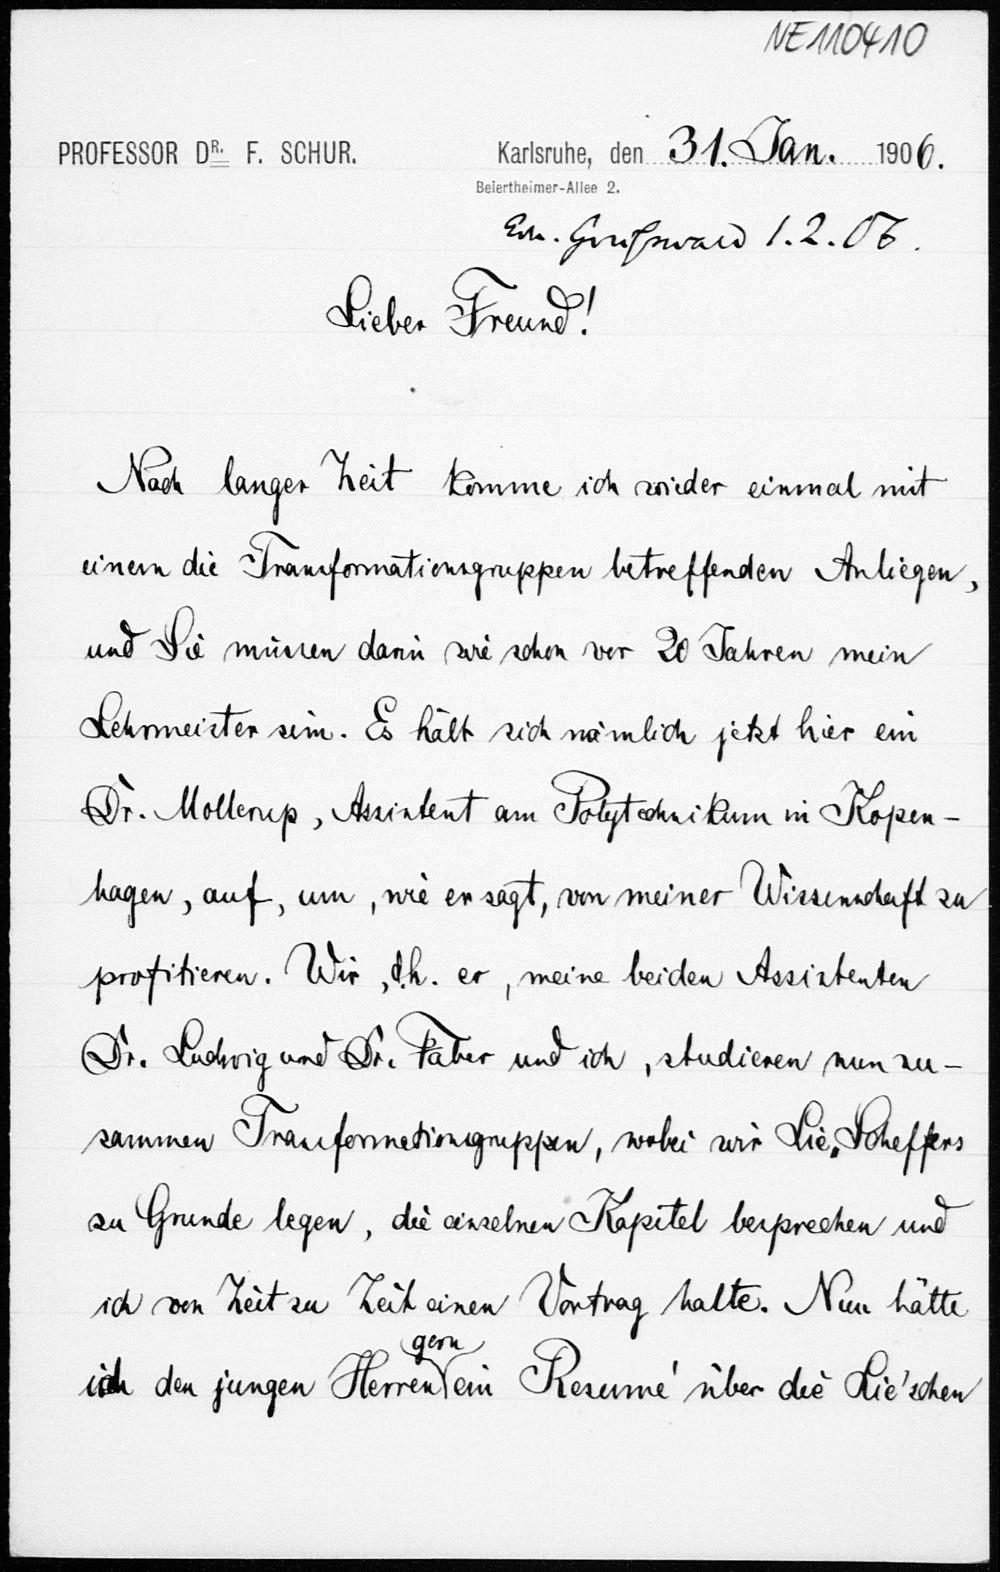 NE110410
PROFESSOR DR. F. SCHUR.
Karlsruhe, den 31. Jan. 1906.
Beiertheimer-Allee 2.
Erh. Greifswald 1.2.06.
Lieber Freund!
Nach langer Zeit komme ich wieder einmal mit
einem die Transformationsgruppen betreffenden Anliegen,
und Sie müssen darin wie schon vor 20 Jahren mein
Lehrmeister sein. Es hält sich nämlich jetzt hier ein
Dr. Mollerup, Assistent am Polytechnikum in Kopen-
hagen, auf, um, wie er sagt, von meiner Wissenschaft zu
profitieren. Wir, d.h. er, meine beiden Assistenten
Dr. Ludwig und Dr. Faber und ich, studieren nun zu-
sammen Transformationsgruppen, wobei wir Lie-Scheffers
zu Grunde legen, die einzelnen Kapitel besprechen und
ich von Zeit zu Zeit einen Vortrag halte. Nun hätte
gern
ich den jungen Herren ein Resumé über die Lie'schen